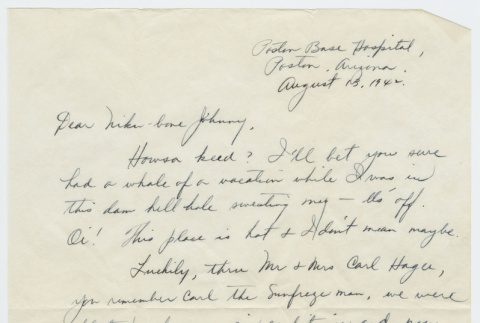 Poston Base Hospital,
Poston, Arizona.
August 13, 1942.
Dear Niku-bone Johnny,
Howsa keed? I'll bet you sure
had a whale of a vacation while I was in
this dam hell hole sweating my — "it's" off.
Oi! This place is hot & I don't mean maybe.
Luckily, thru Mr & Mrs Carl Hagee,
you remember Carl the Sunfreze man, we were